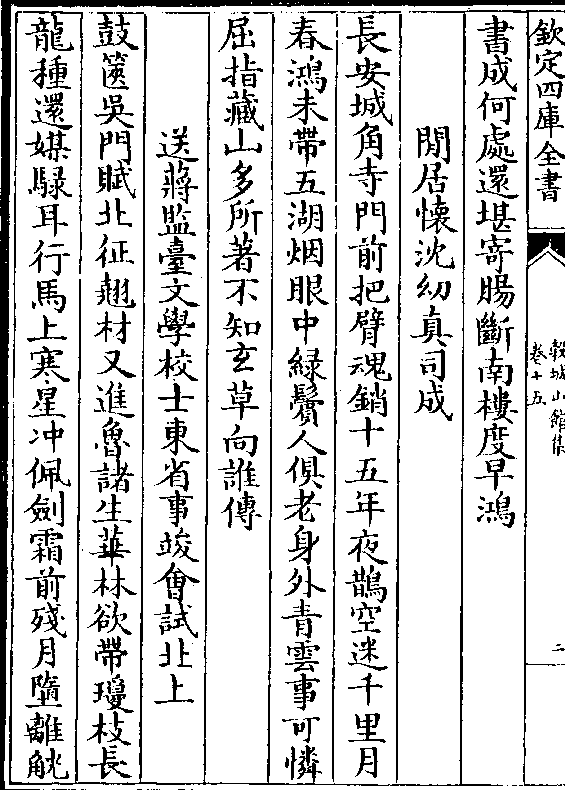 欽定四庫全書
穀城山館集
卷十五
二
書成何處還堪寄腸斷南樓度早鴻
閒居懐沈幼真司成
長安城角寺門前把臂魂銷十五年夜鵲空迷千里月
春鴻未帶五湖烟眼中緑鬢人俱老身外青雲事可憐
屈指藏山多所著不知玄草向誰傳
送蔣監臺文學校士東省事竣會試北上
鼓篋吳門賦北征翹材又進魯諸生華林欲帶瓊枝長
龍種還媒騄耳行馬上寒星冲佩劍霜前殘月墮離觥